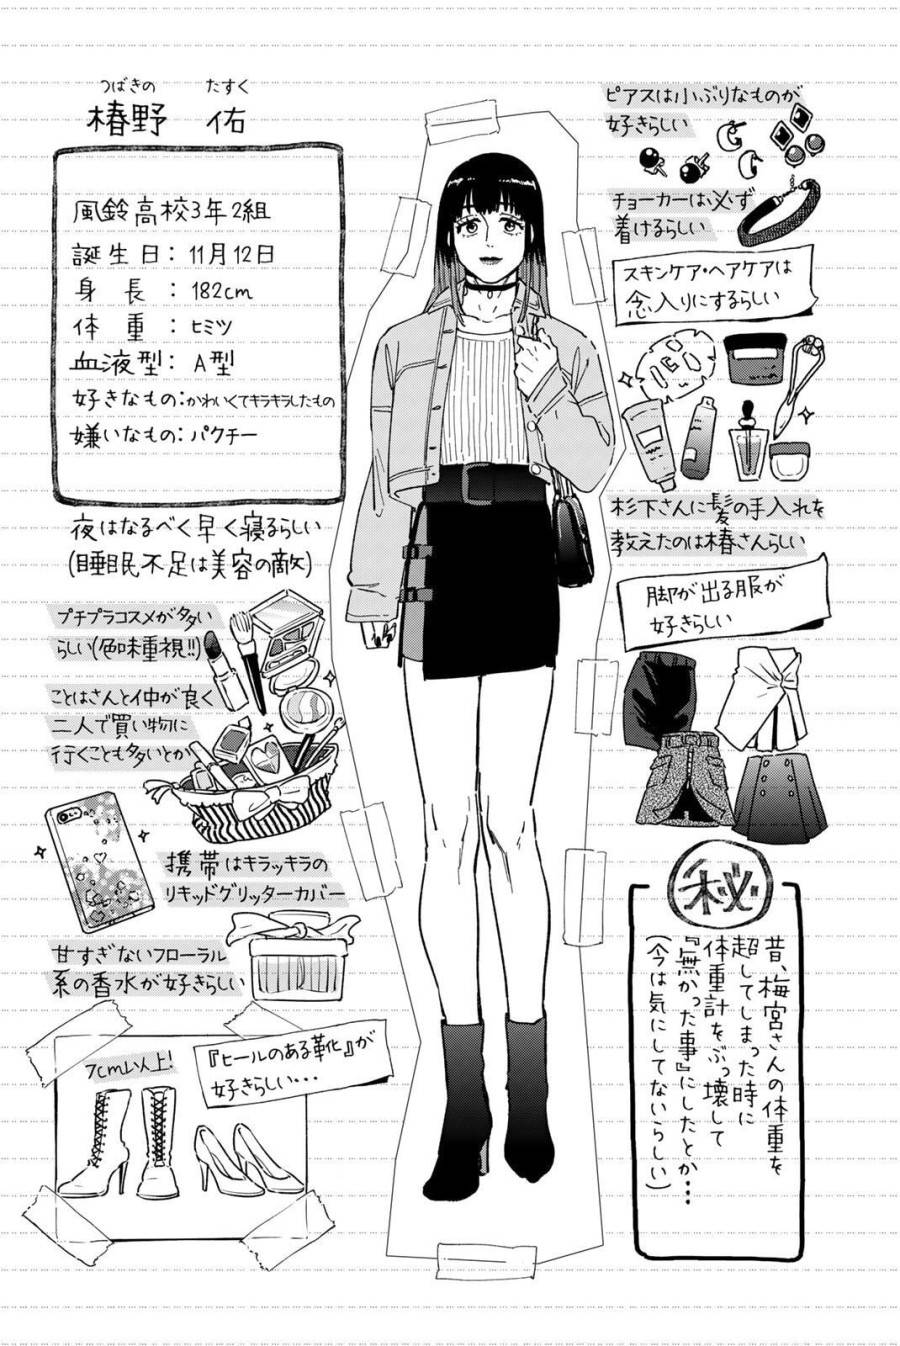 つばきの たすく
椿野 佑
風鈴高校3年2組
誕生日：11月12日
身長：182cm
体重：ヒミツ
血液型：A型
好きなもの：かわいくてキラキラしたもの
嫌いなもの：パクチー
夜はなるべく早く寝るらしい
(睡眠不足は美容の敵)
プチプラコスメが多い
らしい(色味重視!!)
ことはさんと仲が良く
二人で買い物に
行くことも多いとか
携帯はキラッキラの
リキッドグリッターカバー
甘すぎないフローラル
系の香水が好きらしい
7cm以上!
『ヒールのある靴』が
好きらしい…
ピアスは小ぶりなものが
好きらしい
チョーカーは必ず
着けるらしい
スキンケア・ヘアケアは
念入りにするらしい
杉下さんに髪の手入れを
教えたのは椿さんらしい
脚が出る服が
好きらしい
秘
昔、梅宮さんの体重を
超してしまった時に
体重計をぶっ壊して
『無かった事』にしたとか…
(今は気にしてないらしい)